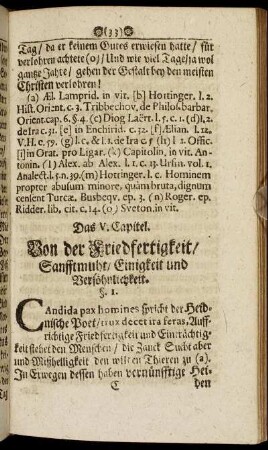 (33)
Tag/ da er keinem Gutes erwiesen hatte/ für
verlohren achtete (o)/ Und wie viel Tage/ ja wol
gantze Jahre/ gehen der Gestalt bey den meisten
Christen verlohren!
(a) Æl. Lamprid. in vit. (b) Hottinger. l. 2.
Hist. Orient. c. 3. Tribbechov. de Philos. barbar.
Orient. cap. 6. §. 4. (c) Diog Laërt. l. 5. c. 1. (d) l. 2.
de Ira c. 31. (e) in Enchirid. c. 52. (f) Ælian. l. 12.
V. H. c. 59. (g) l. c. & l. 1. de Ira c. 5 (h) l 1. Offic.
(i) in Orat. pro Ligar. (k) Capitolin. in vit. An-
tonin. (l) Alex. ab Alex. l. 1. c. 13. Ursin. vol. 1.
Analect. l. 5. n. 39. (m) Hottinger. l. c. Hominem
propter abusum minore, quàm bruta, dignum
cenient Turcæ. Busbeqv. ep. 3. (n) Roger. ep.
Ridder. lib. cit. c. 14. (o) Sveton. in vit.
Das V. Capitel.
Von der Friedfertigkeit/
Sanfftmuht/ Einigkeit und
Versöhnlichkeit.
§. 1.
Candida pax homines spricht der Heid-
nische Poet/ trux decet ira feras. Auff-
richtige Friedfertigkeit und Einträchtig-
keit stehet den Menschen/ die Zanck Sucht aber
und Mißhelligkeit den wilden Thieren zu (a).
In Erwegen dessen haben vernünfftige Hei-
C
den